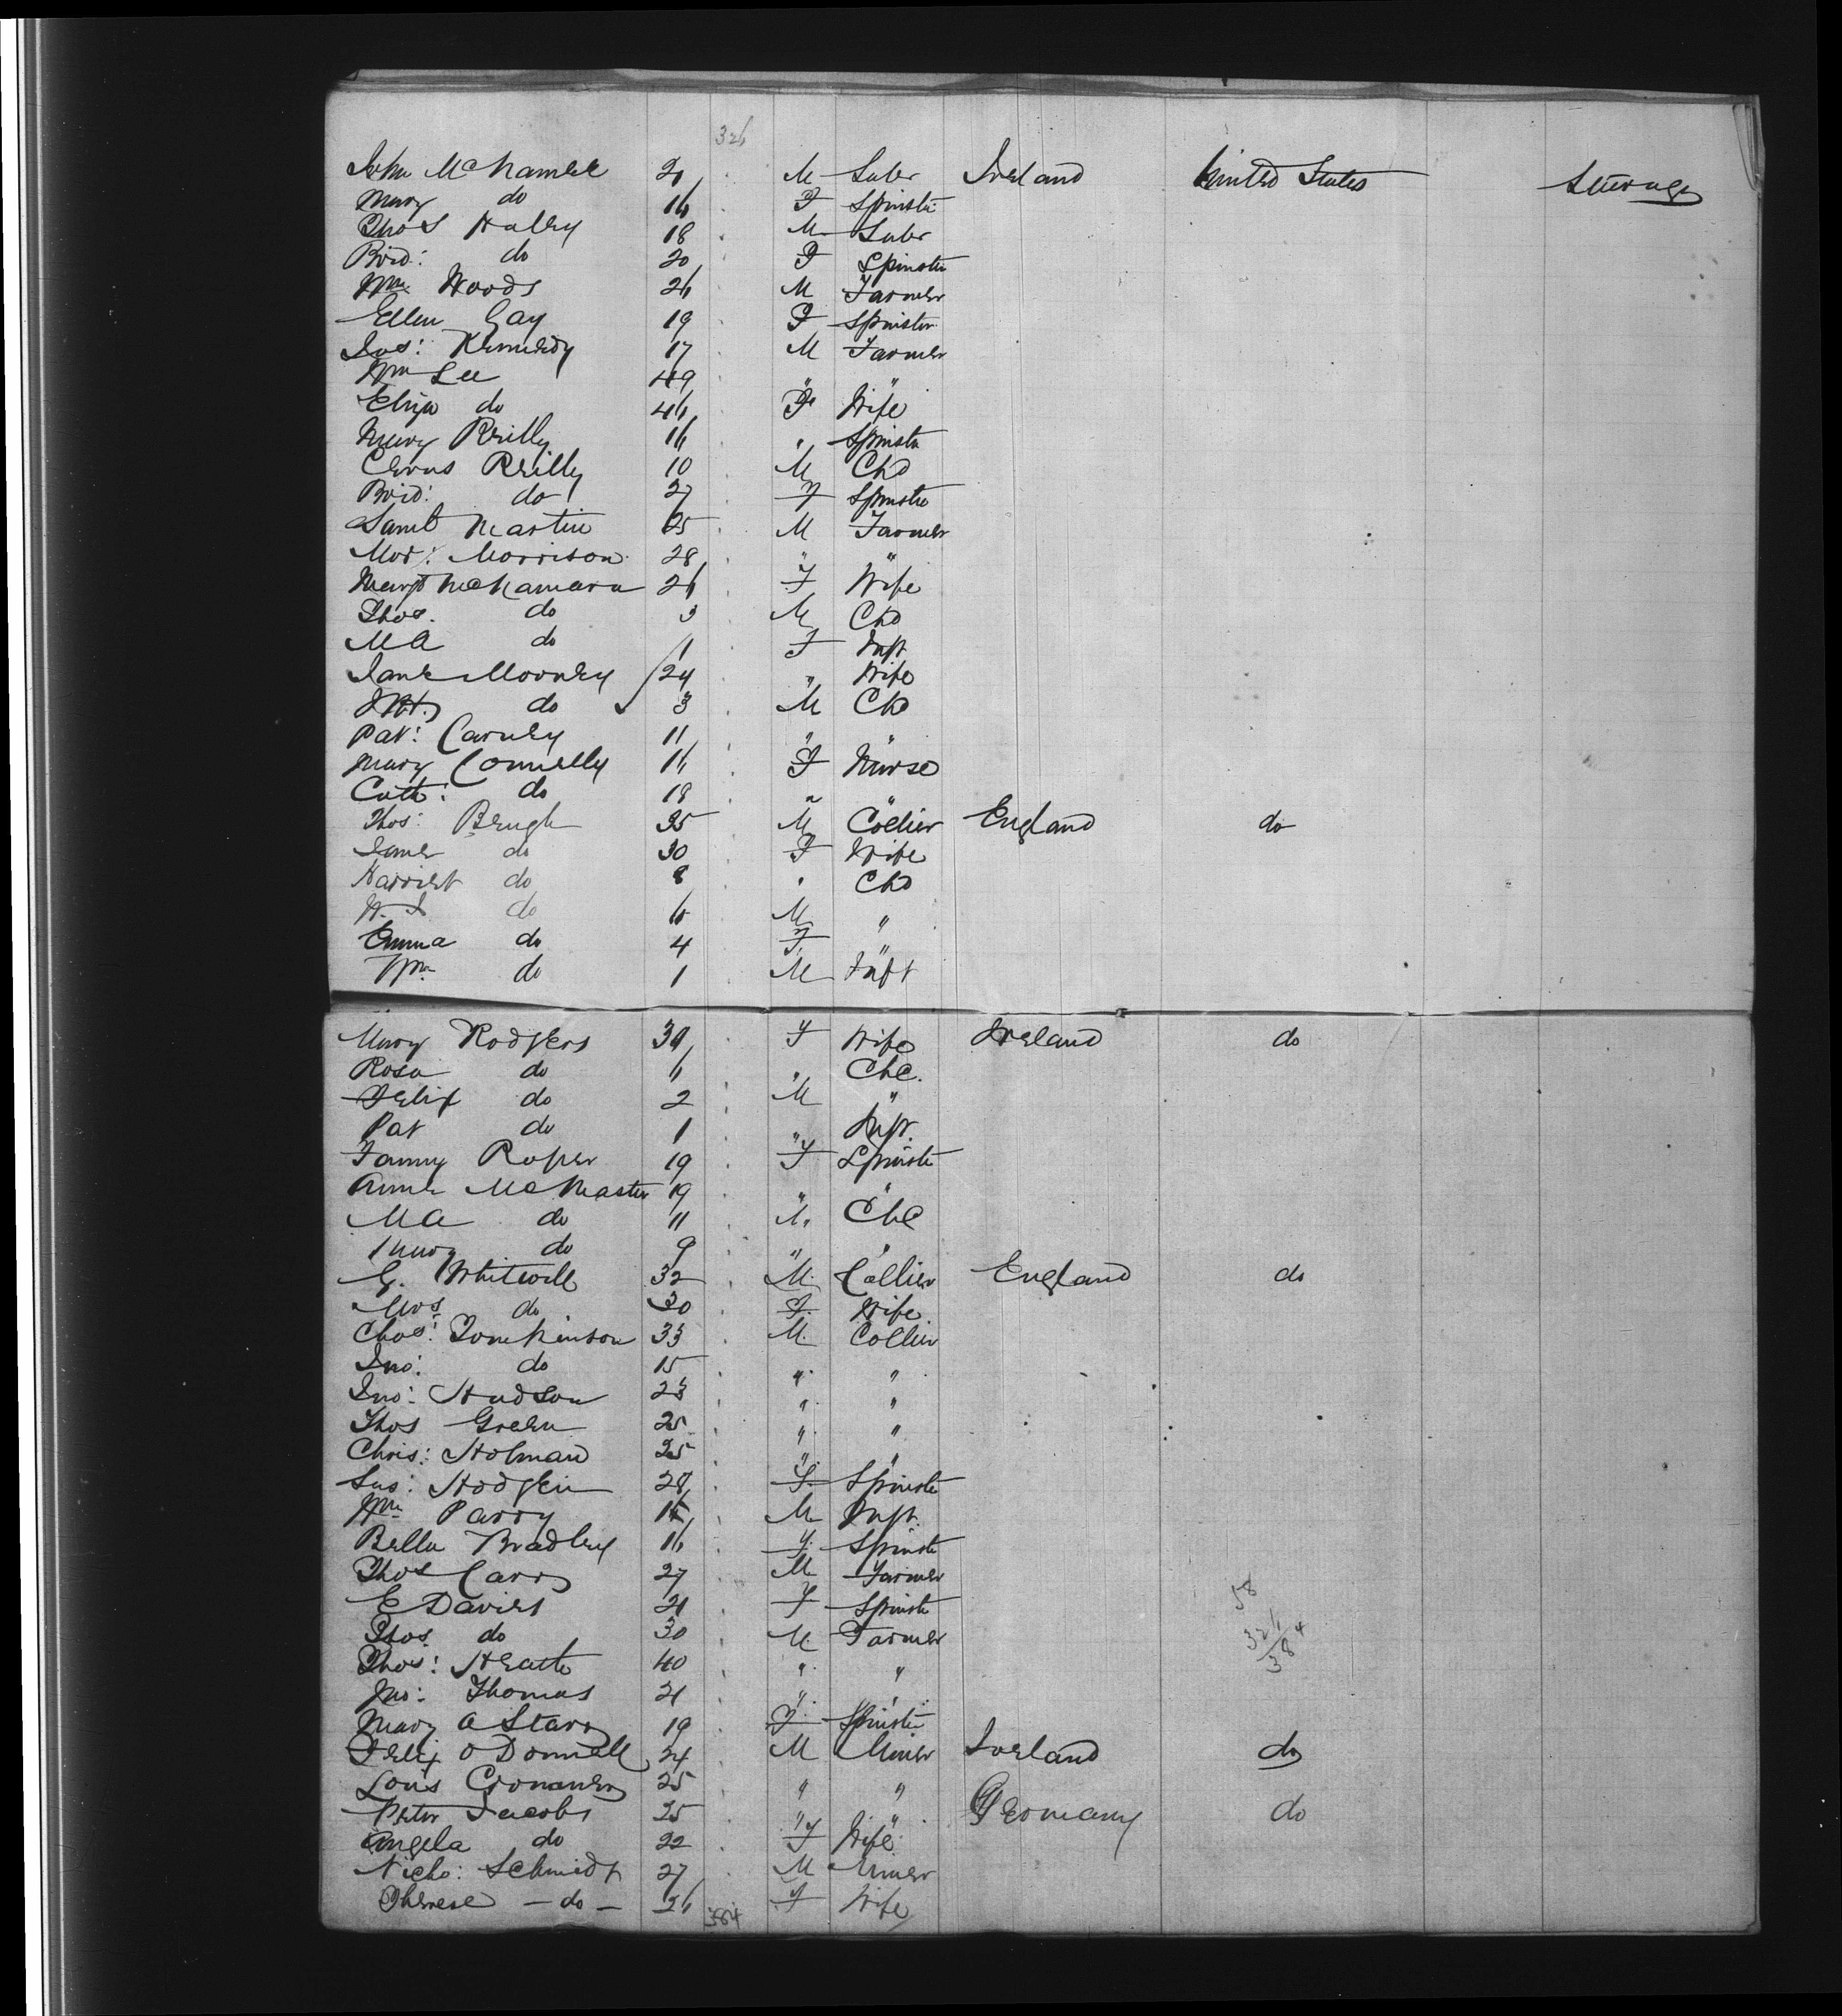 326
John McNamee 21 M Labr Ireland United States Steerage
Mary do 16 F Spinstr
Thos Halley 18 M Labr
Brid: do 20 F Spinstr
Wm Woods 26 M Farmer
Ellen Gay 19 F Spinster
Jas: Kennedy 17 M Farmer
Wm Lee 49 " "
Eliza do 46 F Wife
Mary Reilly 16 " Spinstr
Reilly 10 M Chd
Brid: do 27 F Spinstr
Saml Martin 25 M Farmer
Mor: Morrison 28 " "
Margt McNamara 26 F Wife
Thos. do 3 M Chd
M A do 1 F Inft
Jane Mooney 24 " Wife
do 3 M Chd
Pat: Carney 11 " "
Mary Connelly 16 F Nurse
Cath: do 18 " "
Thos: Brugh 35 M Collier England do
James do 30 F Wife
Harriet do 8 " Chd
W. J do 6 M "
Emma do 4 F "
Wm do 1 M Inft
Mary Rodgers 39 F Wife Ireland do
Rosa do 6 " Chd.
Felix do 2 M "
Pat do 1 " Inft.
Fanny Roper 19 F Spinstr
Annie McMaster 19 " "
M A do 11 " Chd
Mary do 9 " "
G. Whitwell 32 M. Collier England do
Mrs do 30 F. Wife
Chas: Tomkinson 33 M. Collier
Jno: do 15 " "
Jno: Hudson 23 " "
Thos Green 25 " "
Chris: Holman 25 " "
Sus: Hodgkin 28 F. Spinstr
Wm Parry M Inft.
Bella Bradley 16 F. Spinstr
Thos Carr 27 M Farmer
E Davies 21 F Spinstr
58
Thos. do 30 M. Farmer
326
Thos: Heath 40 " "
384
Jno: Thomas 21 " "
Mary A Starr 19 F Spinstr
Felix O Donnell 24 M Miner Ireland do
Louis 25 " "
Peter Jacobs 25 " " Germany do
Angela do 22 F Wife
Nicho: Schmidt 27 M Miner
Therese - do - 26 F Wife
384